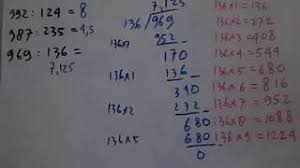 992 : 124 = 8
987 : 235 = 4,5
969 : 136 =
7,125
7,125
136 / 969
136x7 952
170
136x1 136
340
136x2 232
680
136x5 680
0
136x1 = 136
136x2 = 272
136x3 = 408
136x4 = 544
136x5 = 680
136x6 = 816
136x7 = 952
136x8 = 1088
136x9 = 1224